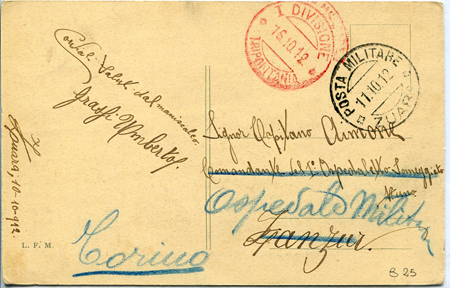 I DIVISIONE
16.10.12
TRIPOLITANIA
POSTA MILITARE
11.10.12
ZUARA
Cordiali Saluti dal maniscalco
Graffi Umberto
Zuara, 10-10-912
Signor Capitano Aimone
Comandante del 1° Ospedaletto Someggiato
Ospedale Militare
Zanzur
Torino
L. F. M.
B 25